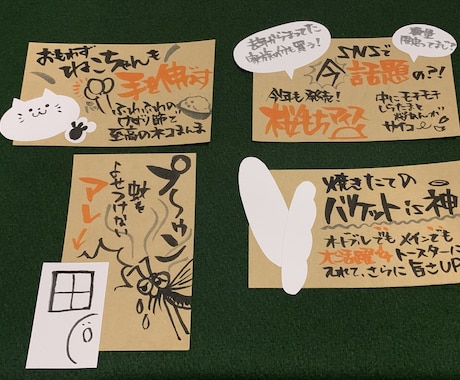 おもわず
ねこちゃんも
手を伸ばす
ふわふわの、
けずり節で
至高のネコまんま
家族の分も買う!
数量
限定ってまじ?
SNSで
今話題の?!
今年も発売!
桜もちアイス
中にモチモチ
桜あんが
サイコー
プ〜ウン
蚊を
よせつけない
アレ↓
焼きたての
バゲット is 神
オードブルでも メインでも
大活躍 トースターに
入れて、さらに 旨さUP